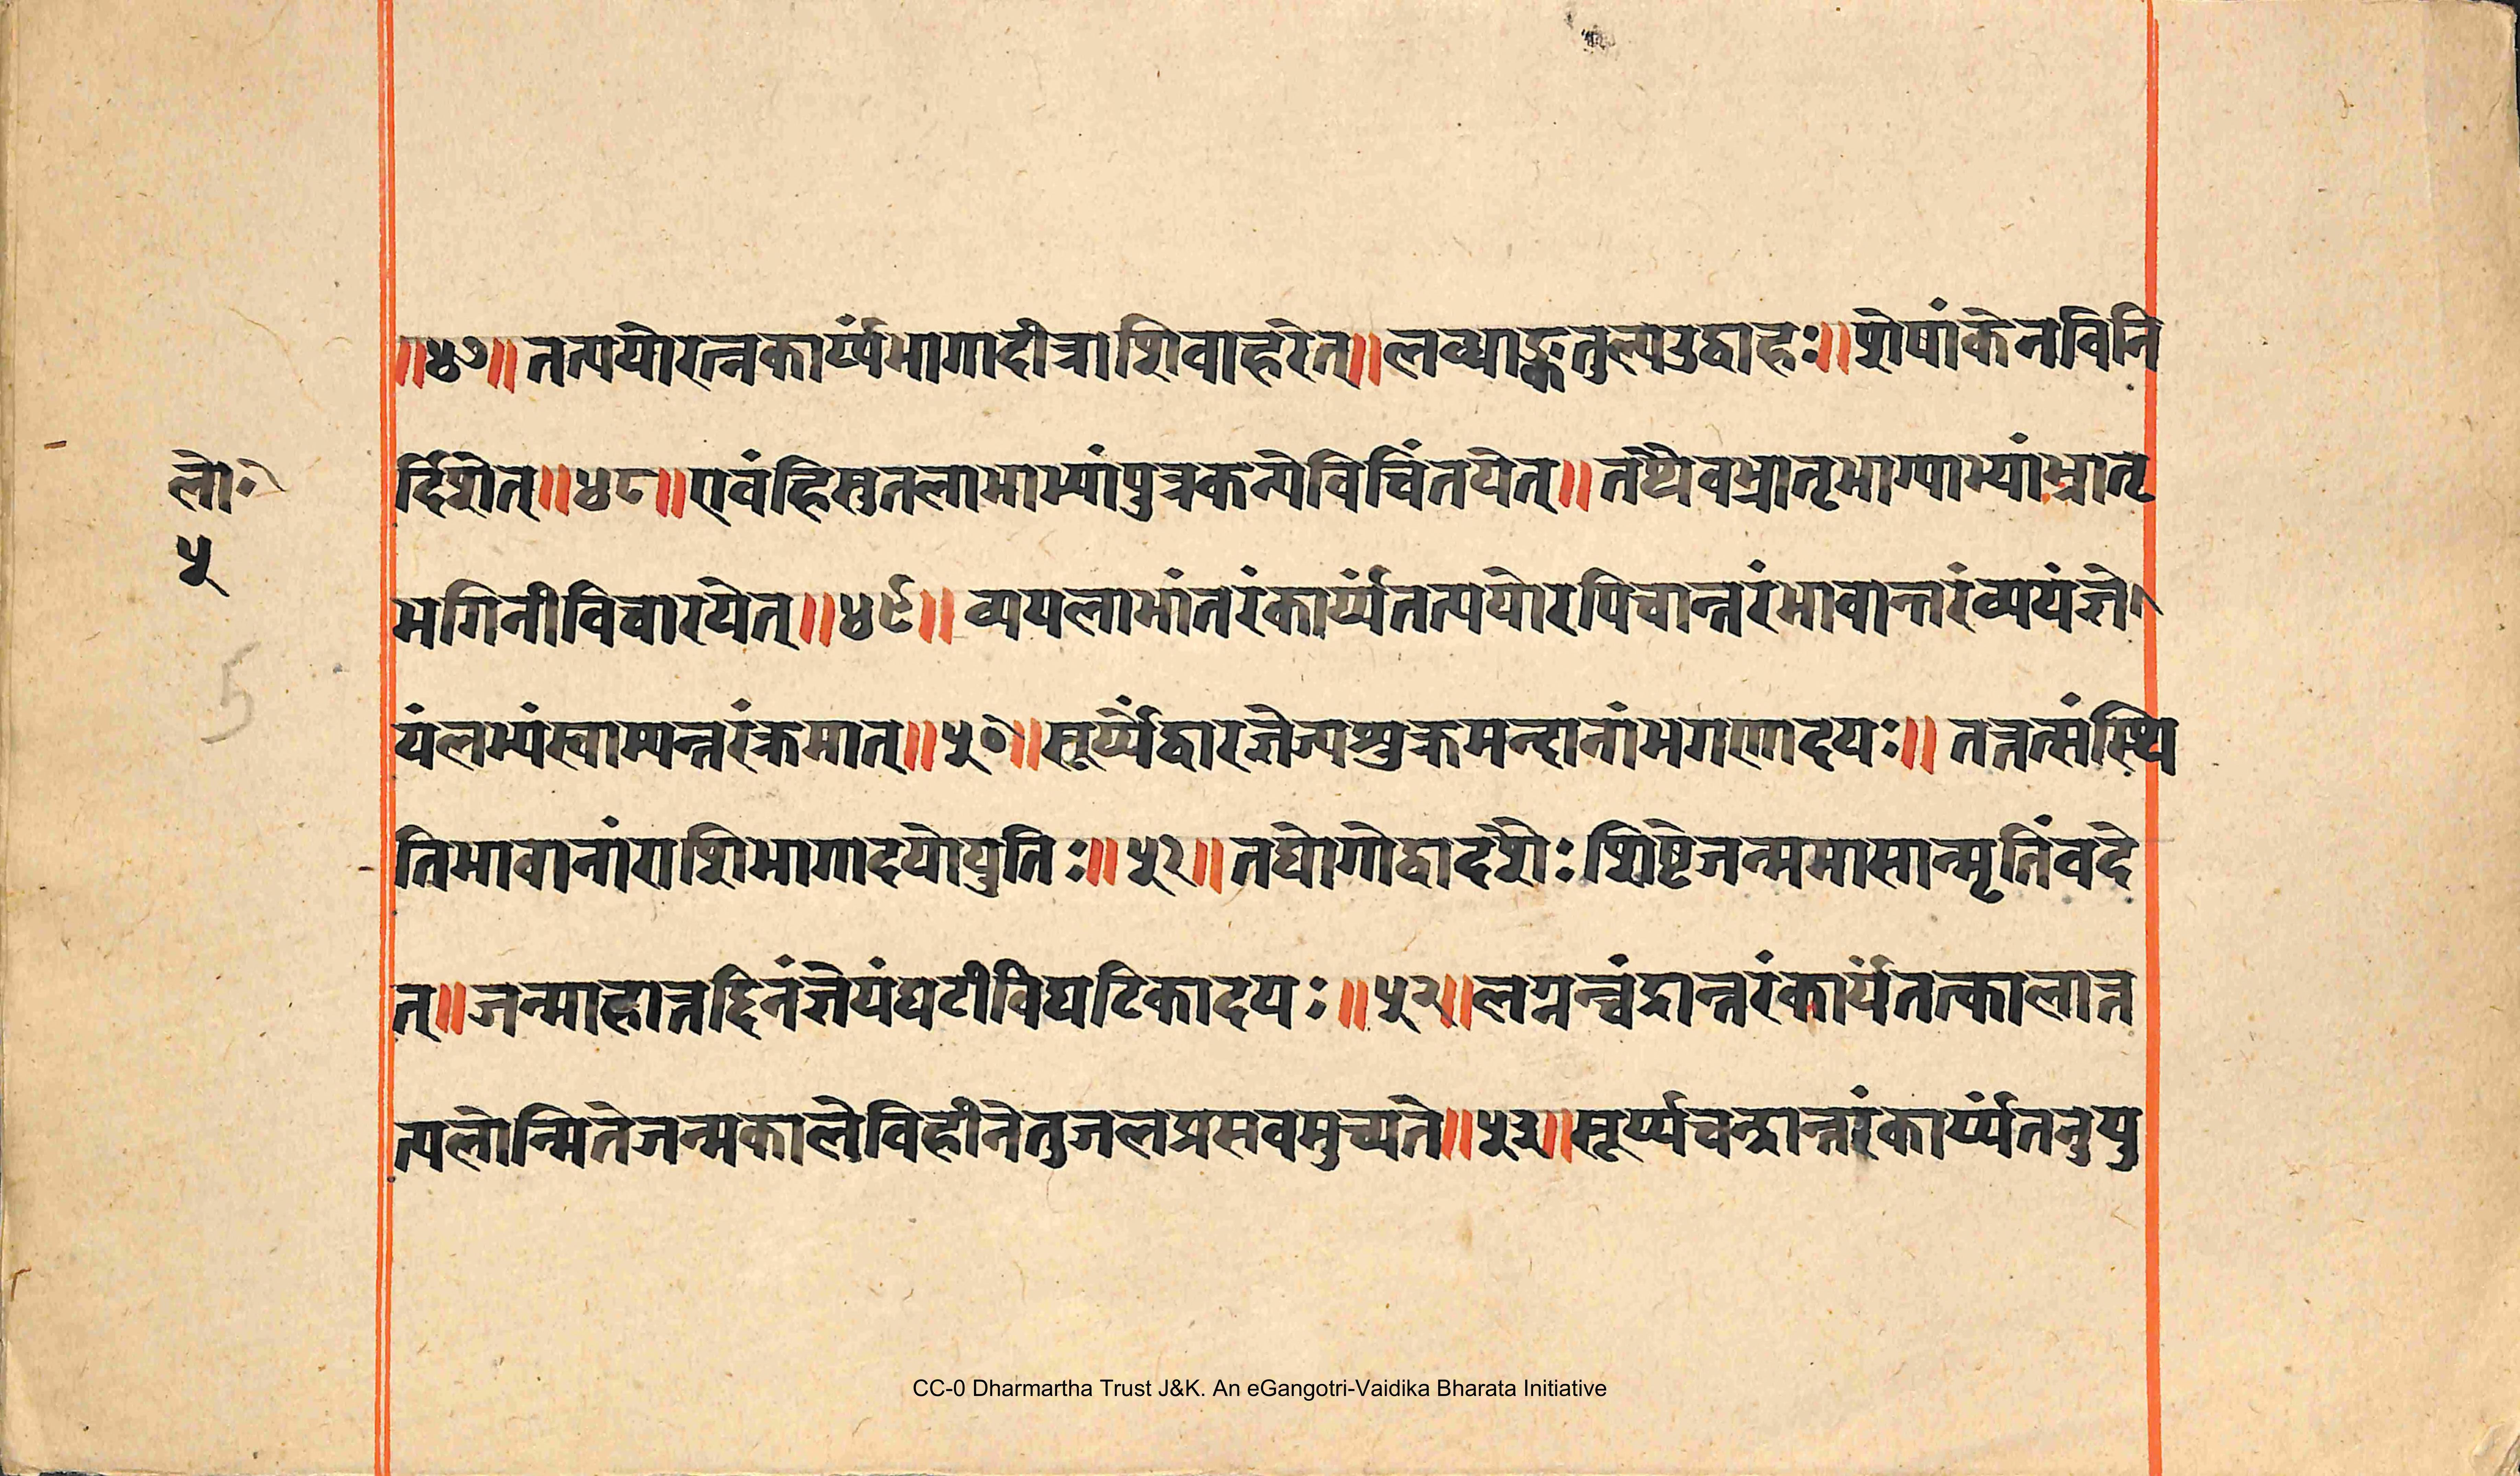 ॥४७॥ तत्पयोरत्नकार्य्यंभागादीत्राशिवाहरेत्॥लब्धाङ्कतुल्यउद्वाहः॥शेषांकेनविनि
र्द्दिशेत्॥४८॥एवंहिसुतलाभाभ्यांपुत्रकन्येविचिंतयेत्॥तथैवभ्रातृभाग्याभ्यांभ्रातृ
लोः
५
भगिनीविचारयेत्॥४९॥ व्ययलाभांतरंकार्य्यंतत्पयोरपिचान्तरंभावान्तरंव्ययंज्ञे
5
यंलभ्यंस्वाम्यन्तरंक्रमात्॥५०॥सूर्य्यैद्वारज्ञेज्यशुक्रमन्दानांभगणादयः॥ तत्तत्संस्थि
तिभावानांराशिभागादयोयुतिः॥५१॥तद्योगोद्वादशैःशिष्टेजन्ममासान्मृतिंवदे
त्॥जन्माहात्तद्दिनंज्ञेयंघटीविघटिकादयः॥५२॥लग्नन्चंद्रान्तरंकार्यंतत्कालात्त
त्पलोन्मितेजन्मकालेविहीनेतुजलप्रसवमुच्यते॥५३॥सूर्य्यचन्द्रान्तरंकार्य्यंतनुपु
CC-0 Dharmartha Trust J&K. An eGangotri-Vaidika Bharata Initiative